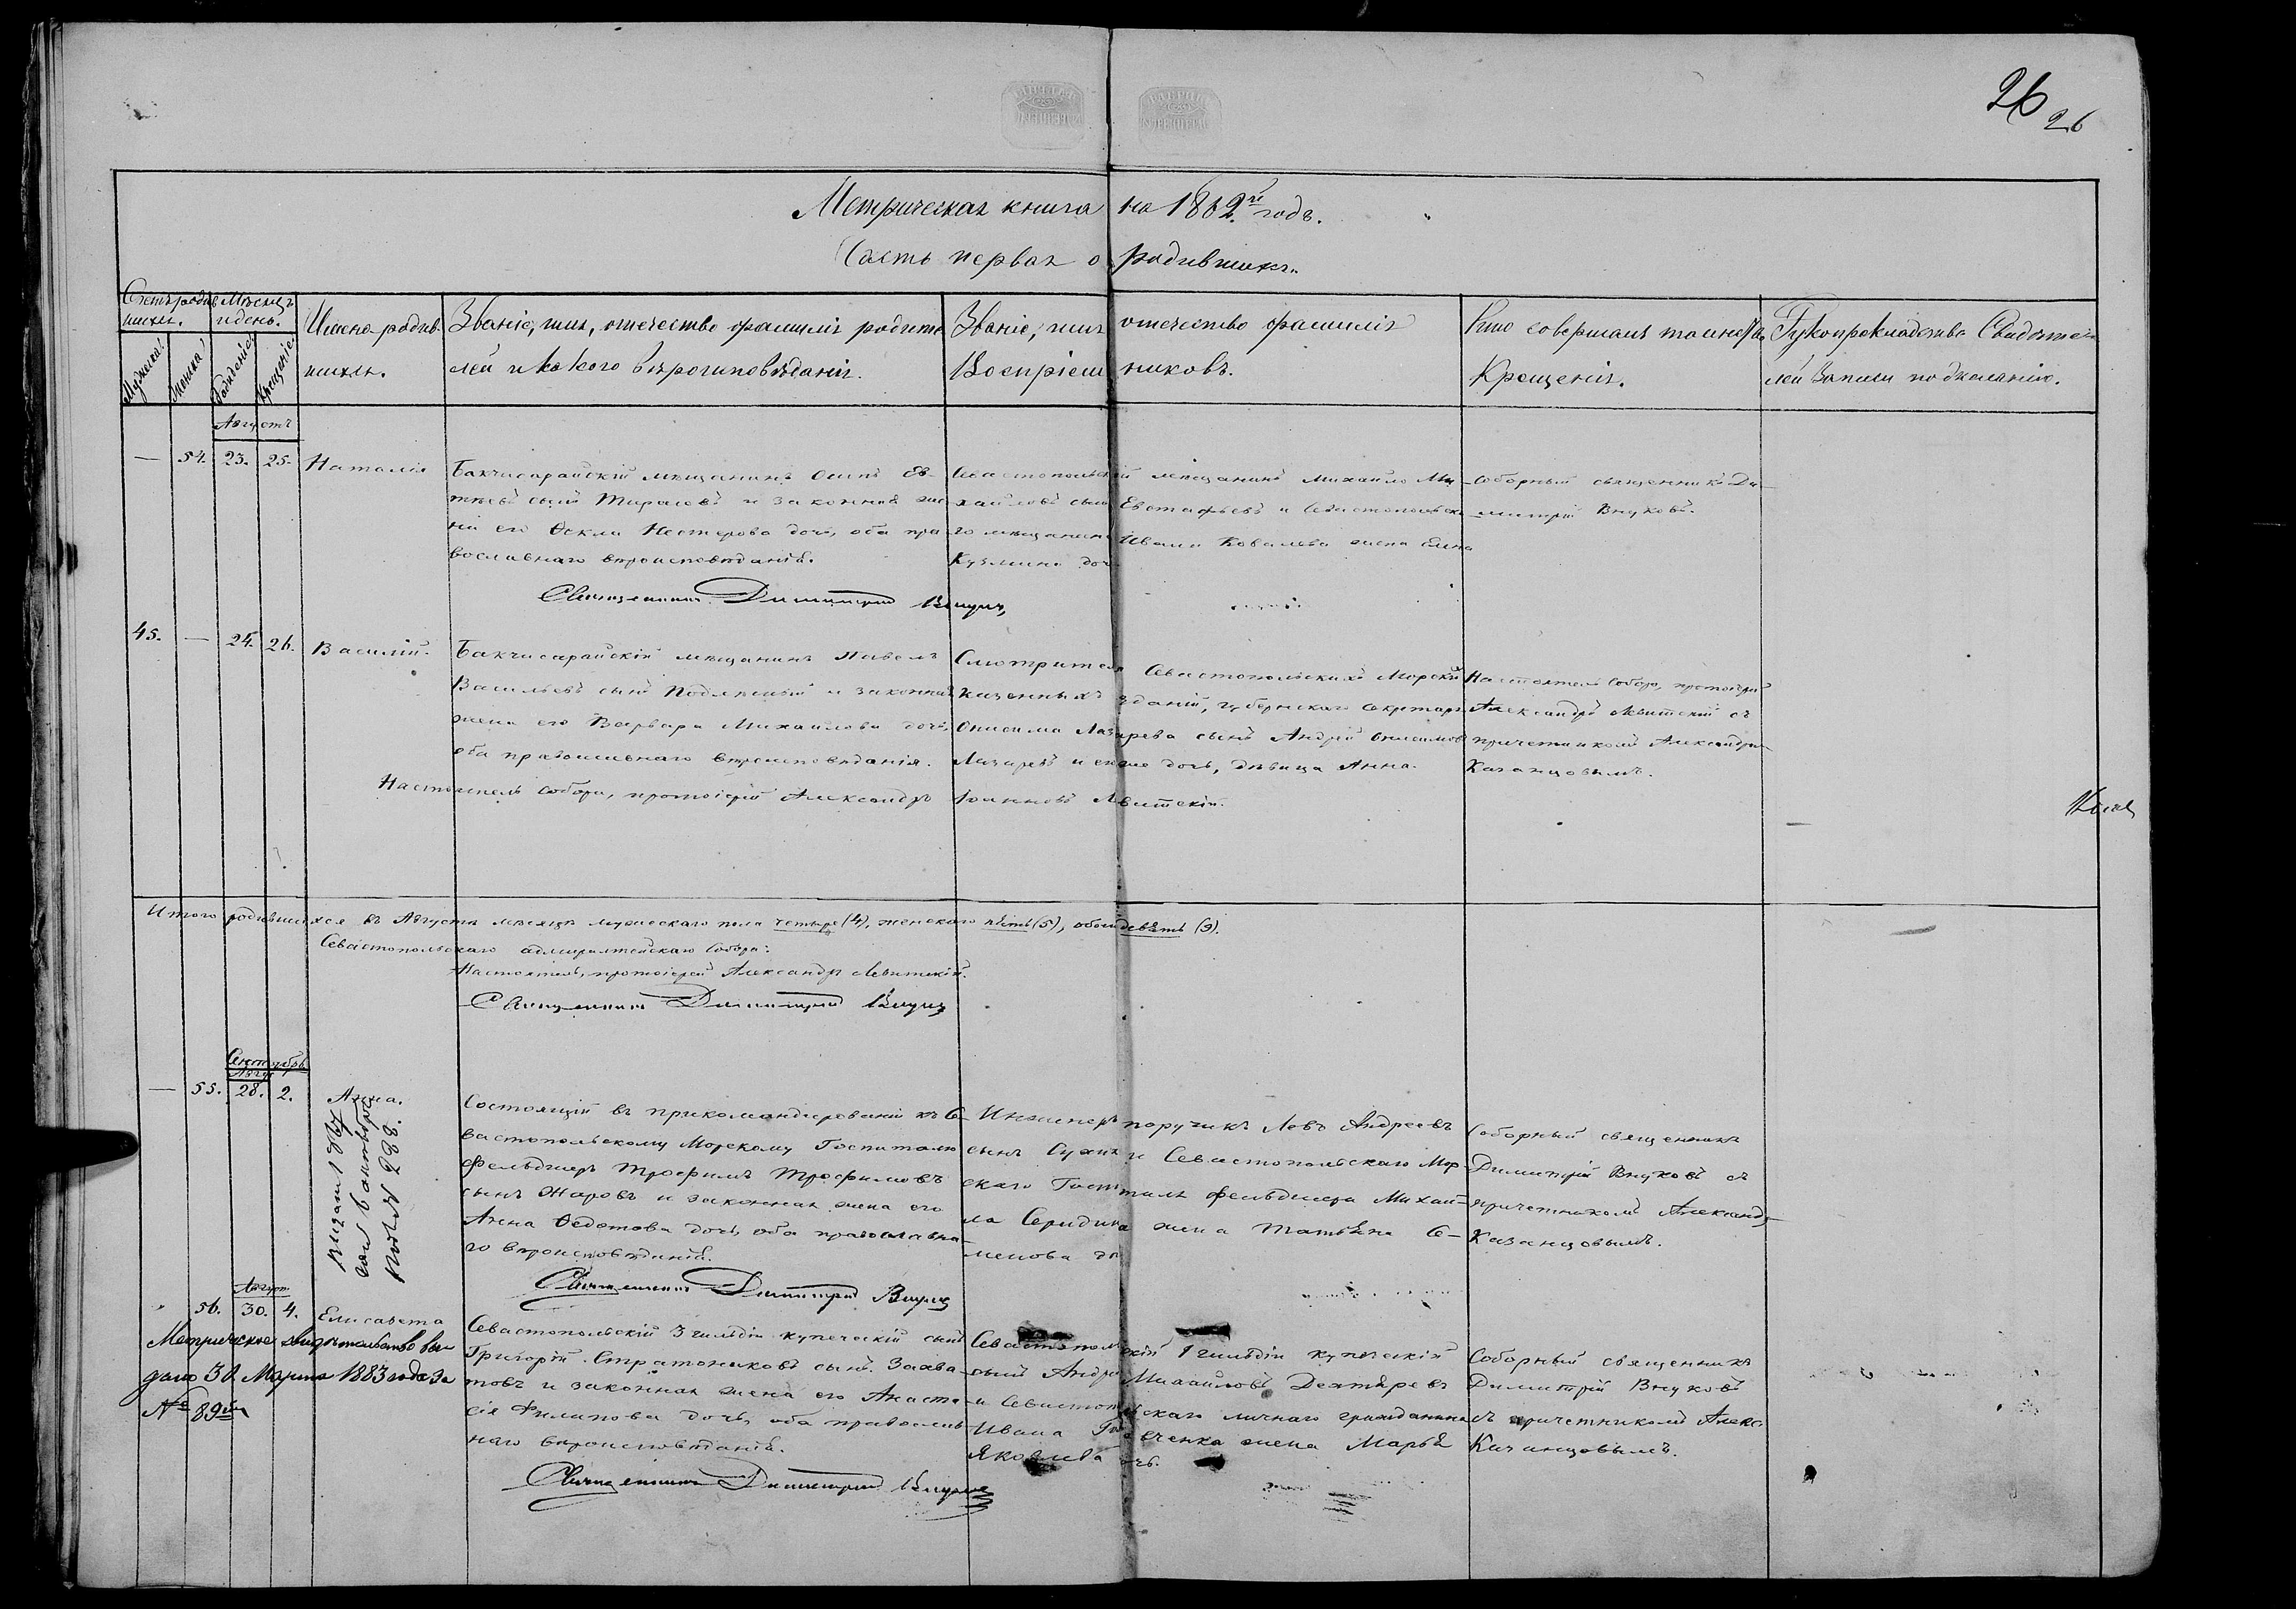 26
26
Метрическая книга на 1882й годъ.
Часть первая о родившихъ.
Счетъ родив
шихъ.
Мѣсяцъ
и день.
Мужска
Женска
Рожденіе
Крещеніе
Имена родив
шихъ.
Званіе, имя, отчество фамилія родите
лей и какого вѣроисповѣданія.
Званіе, имя отчество фамилія
Воспріем никовъ.
Кто совершалъ таинство
Крещенія.
Рукоприкладство Свидѣте
лей записи по желанію.
Августъ
— 54. 23. 25. Наталія
Бакчисарайскій мѣщанинъ Осипъ Ев-
тѣевъ сынъ Тарасовъ и законная же
на его Ѳекла Нестерова дочь, оба пра
вославнаго вѣроисповѣданія.
Священникъ Димитрій Внуковъ
Севастопольскій мѣщанинъ Михаилъ Ми
хайловъ сынъ Евстафьевъ и Севастопольска
го мѣщанина Ивана Ковалева жена Елена
Кузмина доч
Соборный священникъ Ди
митрій Внуковъ.
45. — 24. 26. Василій.
Бакчисарайскій мѣщанинъ Павелъ
Васильевъ сынъ и законная
жена его Варвара Михайлова дочь,
оба православнаго вѣроисповѣданія.
Настоятель собора, протоіерей Александръ Іоанновъ Левитскій.
Смотрителя Севастопольскихъ Морскихъ
казенныхъ зданій, губернскаго секретаря
Онисима Лазарева сынъ Андрей Онисимовъ
Лазаревъ и его же дочь, дѣвица Анна.
Настоятель собора, протоіерей
Александръ Левитскій съ
причетникомъ Александромъ
Казанцовымъ.
Итого родившихся въ Августѣ мѣсяцѣ мужескаго пола четыре (4), женскаго пять (5), обоего девять (9).
Севастопольскаго адмиралтейскаго собора:
Настоятель, протоіерей Александръ Левитскій.
Священникъ Димитрій Внуковъ
Сентябрь
Авгус
— 55. 28. 2. Анна.
1888.
Состоящій въ прикомандированіи къ Се-
вастопольскому Морскому Госпиталю
фельдшеръ Трофимъ Трофимовъ
сынъ Жаровъ и законная жена его
Анна Ѳедотова дочь, оба православна
го вѣроисповѣданія.
Священникъ Димитрій Внуковъ
Инженеръ поручикъ Левъ Андреевъ
сынъ Сухи и Севастопольскаго Мор
скаго Госпиталя фельдшера Михаи-
ла Середина жена Татьяна Се-
менова
Соборный священникъ
Димитрій Внуковъ съ
причетникомъ Александ
Казанцовымъ.
Август
56. 30. 4. Елисавета
Метрическое свидѣтельство вы-
дано 30 Марта 1883 года за
№ 89мъ
Севастопольскій 3 гильдіи купеческій сынъ
Григорій Стратониковъ сынъ Захва
товъ и законная жена его Анаста
сія Филипова дочь, оба православ
наго вѣроисповѣданія.
Священникъ Димитрій Внуковъ
Севастопольскій 1 гильдіи купеческій
сынъ Андрей Михайловъ Дехтяревъ
и Севастопольскаго личнаго гражданина
Ивана вченка жена Марья
Яковлева очь.
Соборный священникъ
Димитрій Внуковъ
съ причетникомъ Алекс
Казанцовымъ.